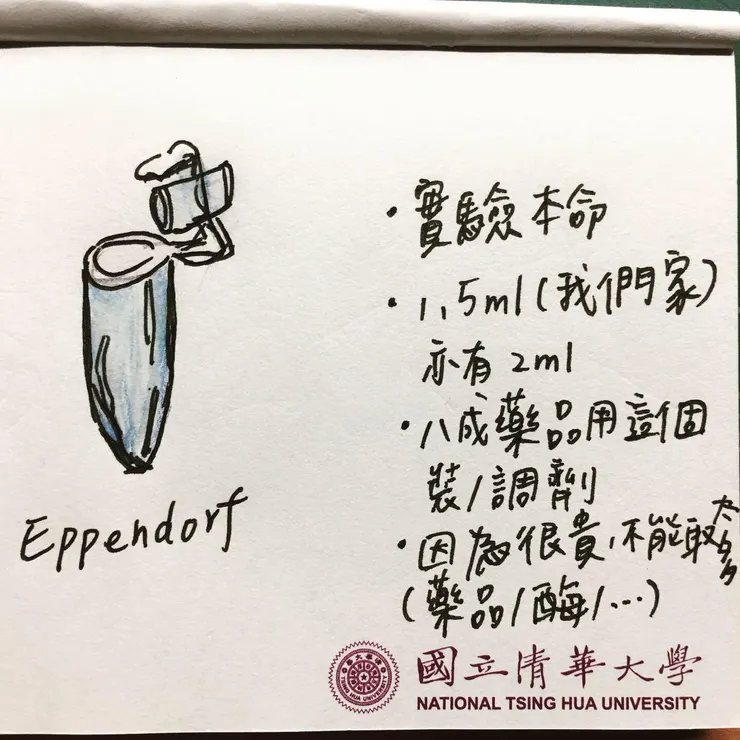 Eppendorf
・實驗本命
・1.5ml(我們家)
亦有 2ml
・八成藥品用這個
裝/調劑
・因為很貴,不能取太多
(藥品/酶/...)
國立清華大學
NATIONAL TSING HUA UNIVERSITY